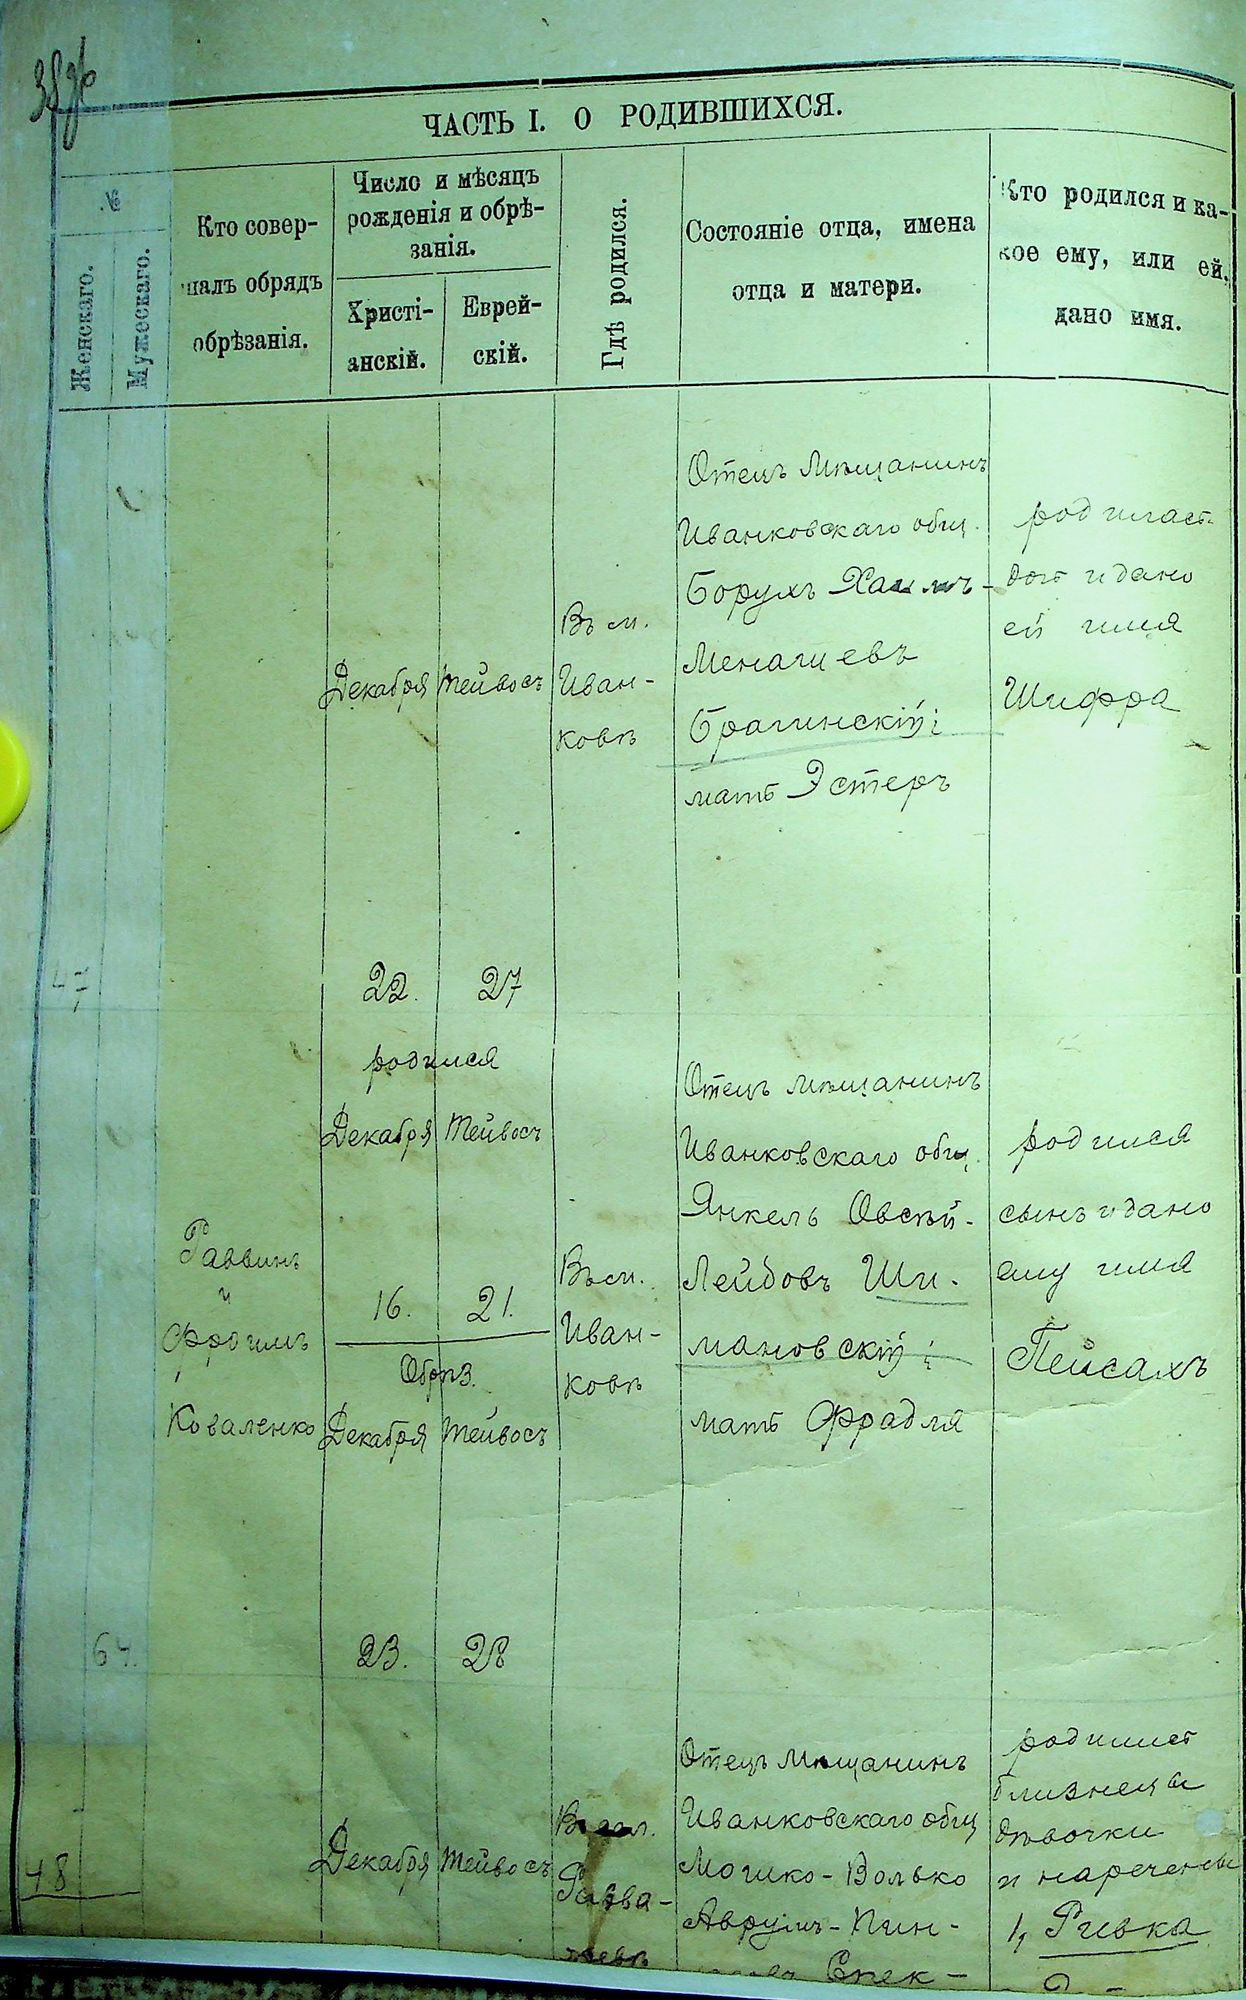 ЧАСТЬ I. О РОДИВШИХСЯ.
№
Женскаго.
Мужескаго.
Кто совер-
шалъ обрядъ
обрѣзанія.
Число и мѣсяцъ
рожденія и обрѣ-
занія.
Христі-
анскій.
Еврей-
скій.
Гдѣ родился.
Состояніе отца, имена
отца и матери.
Кто родился и ка-
кое ему, или ей,
дано имя.
47
Декабря
22.
Тейвосъ
27
Въ м.
Иван-
ковѣ
Отецъ мѣщанинъ
Иванковскаго общ.
Борухъ Хаимъ-
Брагинскій;
мать Эстеръ
родилась
дочь и дано
ей имя
Шифра
64.
Раввинъ
и
Фроимъ
Коваленко
родился
Декабря Тейвосъ
16. 21.
Обрѣз.
Декабря Тейвосъ
23. 28
Въ м.
Иван-
ковѣ
Отецъ мѣщанинъ
Иванковскаго общ.
Янкель Овсѣй-
Лейбовъ Ши-
мановскій;
мать Фрадля
родился
сынъ и дано
ему имя
Пейсахъ
48
Декабря Тейвосъ
Отецъ мѣщанинъ
Иванковскаго общ
Мошко-Волько
Аврумъ-Пин-
Спек-
родились
близнецы
дѣвочки
и наречены
1, Ривка